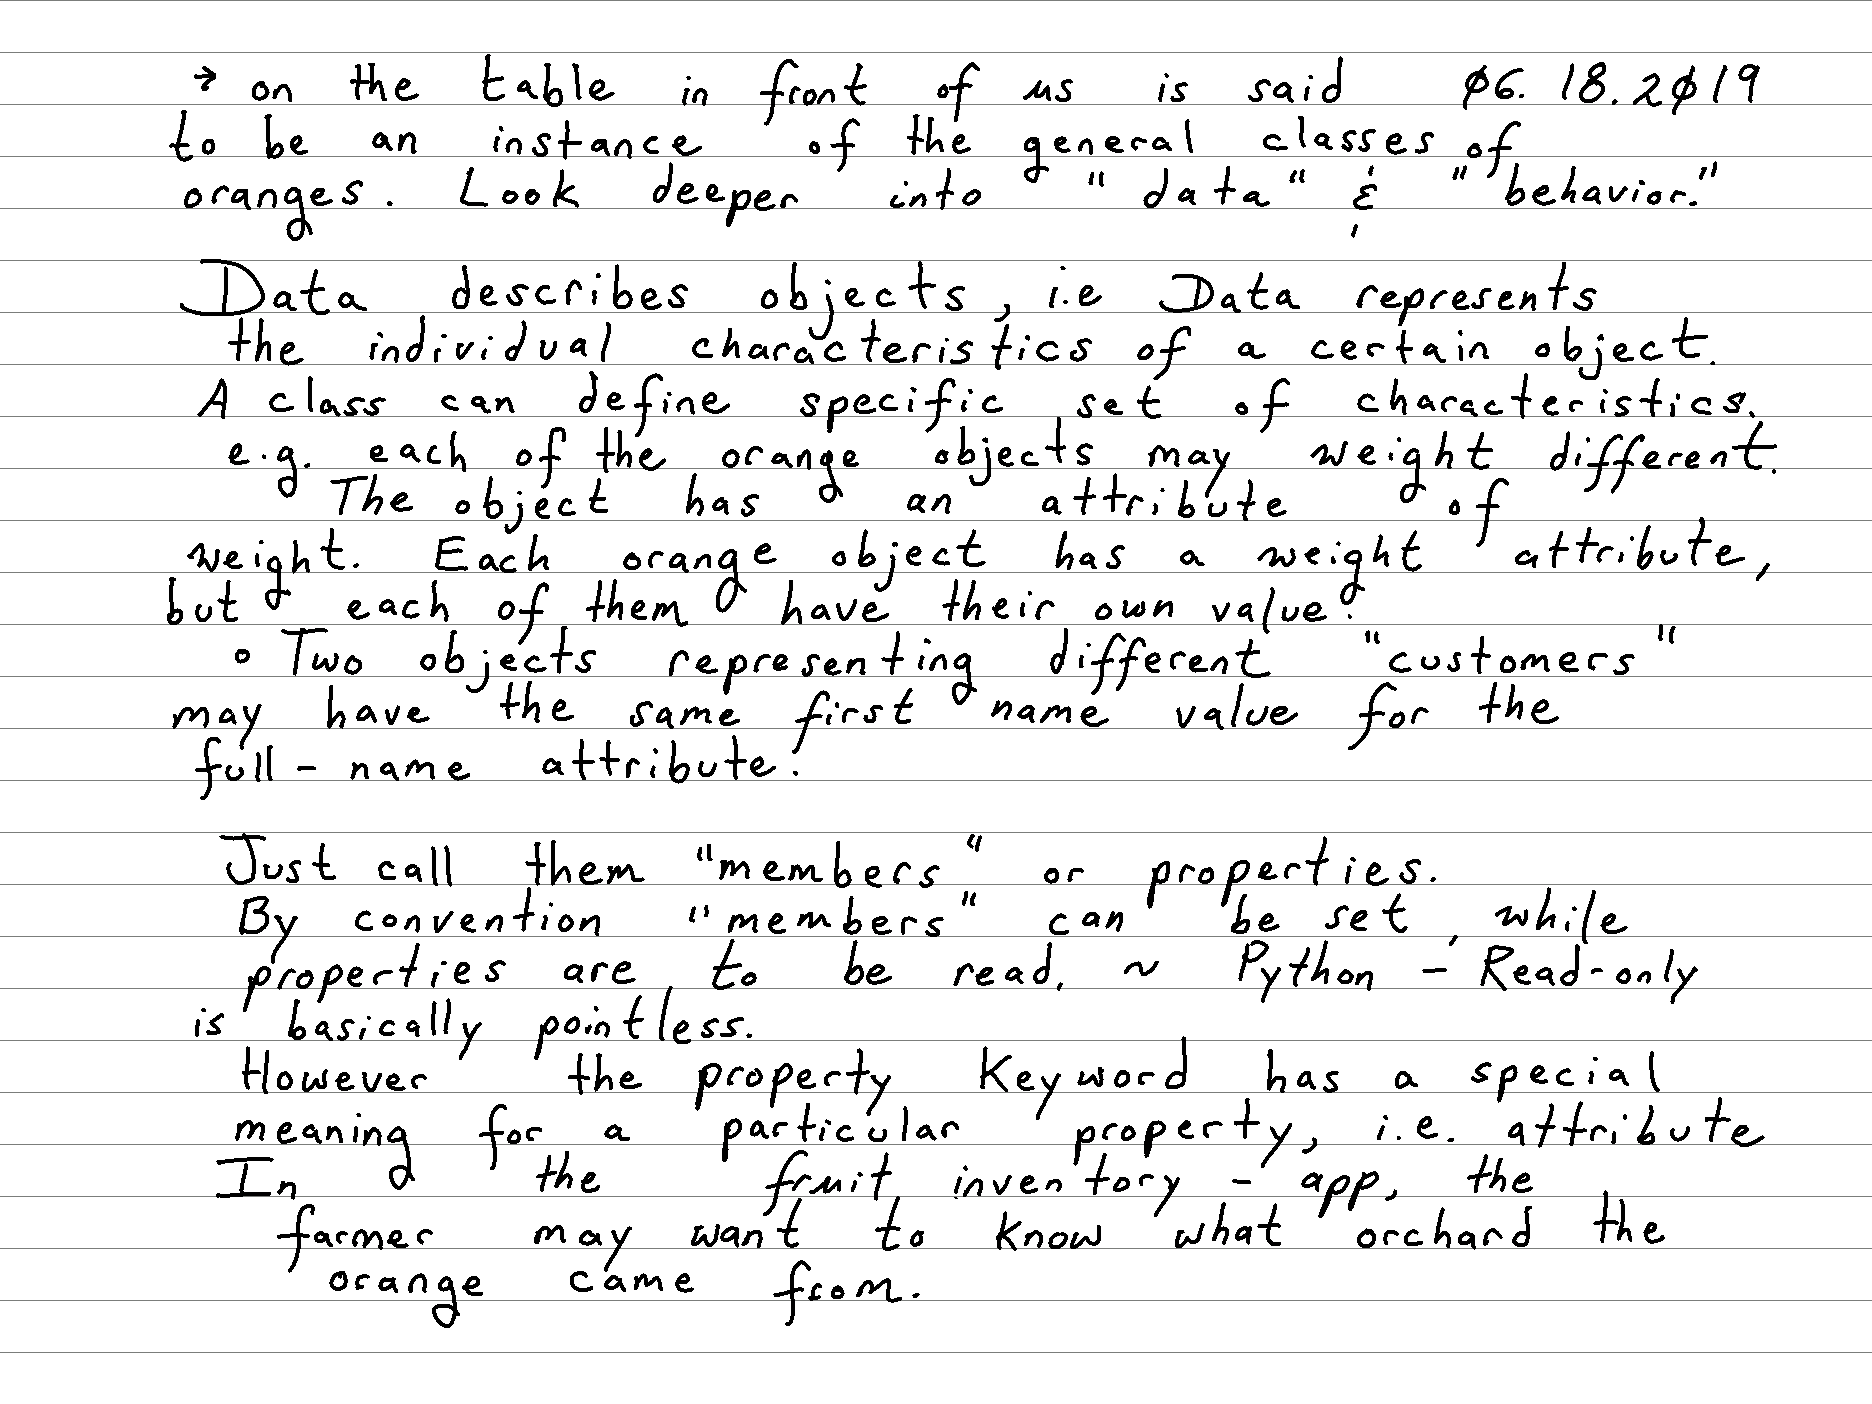 → on the table in front of us is said φ6.18.2φ19
to be an instance of the general classes of
oranges. Look deeper into "data" & "behavior."
Data describes objects, i.e Data represents
the individual characteristics of a certain object.
A class can define specific set of characteristics.
e.g. each of the orange objects may weight different.
The object has an attribute of
weight. Each orange object has a weight attribute,
but each of them have their own value.
∘ Two objects representing different "customers"
may have the same first name value for the
full-name attribute.
Just call them "members" or properties.
By convention "members" can be set, while
properties are to be read. ~ Python - Read-only
is basically pointless.
However the property Keyword has a special
meaning for a particular property, i.e. attribute
In the fruit inventory-app, the
farmer may want to know what orchard the
orange came from.